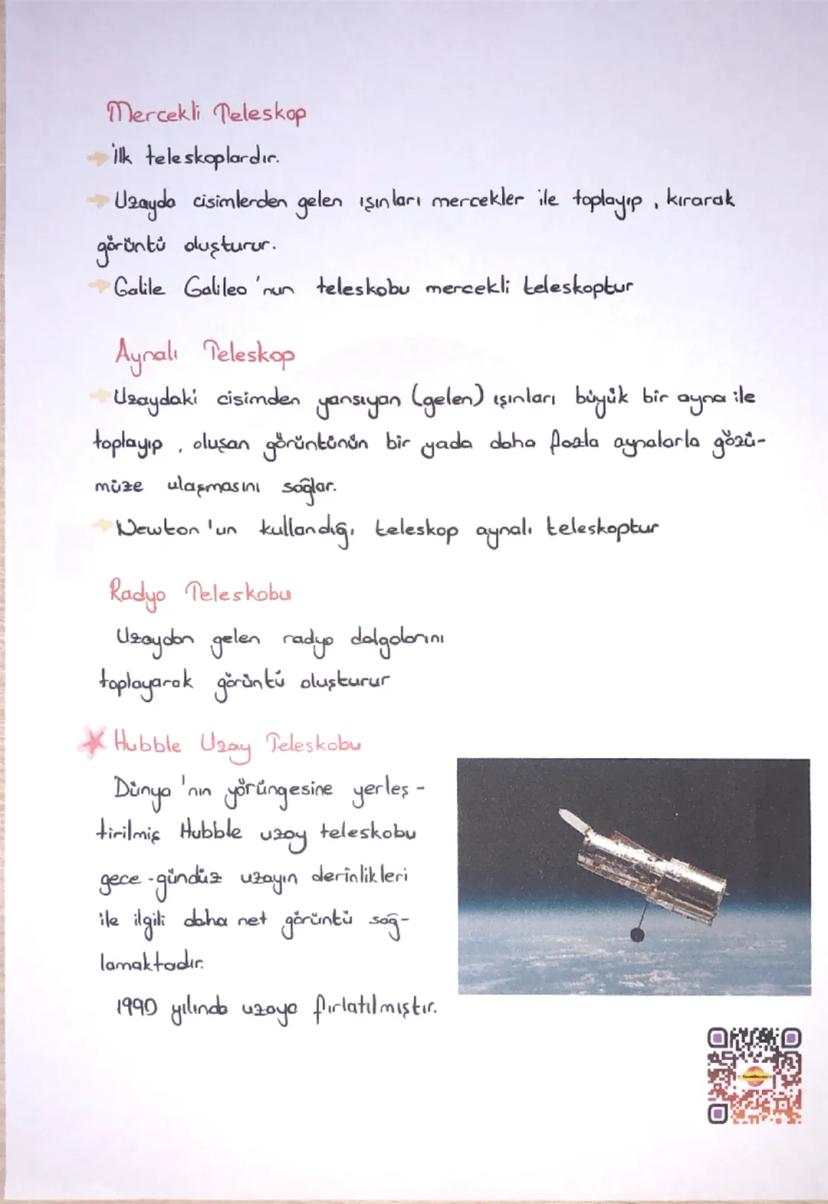 Mercekli Teleskop
İlk teleskoplardır.
Uzayda cisimlerden gelen ışınları mercekler ile toplayıp, kırarak
görüntü oluşturur.
Galile Galileo'nun teleskobu mercekli teleskoptur
Aynalı Teleskop
Uzaydaki cisimden yansıyan (gelen) ışınları büyük bir ayna ile
toplayıp, oluşan görüntünün bir yada daha fazla aynalarla gözü-
müze ulaşmasını sağlar.
Newton'un kullandığı teleskop aynalı teleskoptur
Radyo Teleskobu
Uzaydan gelen radyo dalgalarını
toplayarak görüntü oluşturur
Hubble Uzay Teleskobu
Dünya'nın yörüngesine yerleş-
tirilmiş Hubble uzay teleskobu
gece-gündüz uzayın derinlikleri
ile ilgili daha net görüntü sağ-
lamaktadır.
1990 yılında uzaya fırlatılmıştır.